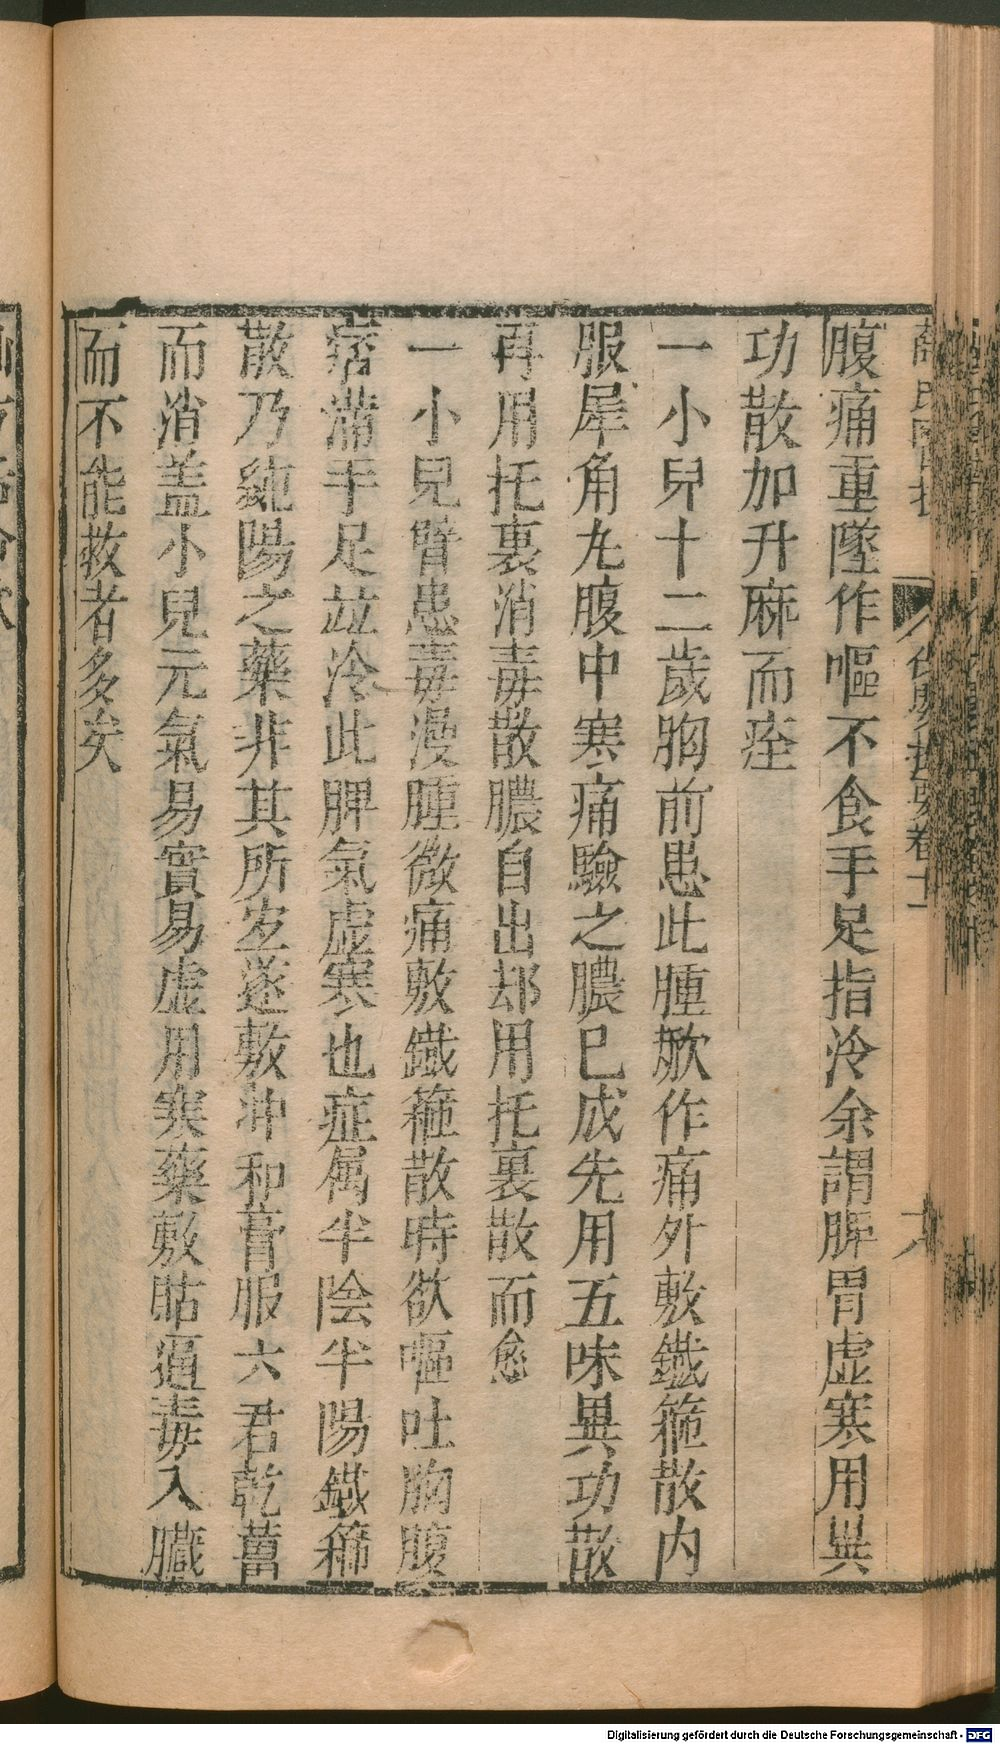 腹痛重墜作嘔不食手足指冷余謂脾胃虚寒用異
功散加升麻而痊
一小兒十二歲胸前患此腫焮作痛外敷鐵箍散内
服犀角丸腹中寒痛驗之膿已成先用五味異功散
再用托裏消毒散膿自出却用托裏散而愈
一小兒臂患毒漫腫微痛敷鐵箍散時欲嘔吐胸腹
痞滯手足竝冷此脾氣虚寒也症属半陰半陽鐵箍
散乃純陽之藥非其所宜遂敷冲和膏服六君乾薑
而消盖小兒元氣易實易虚用寒藥敷貼逼毒入臟
而不能救者多矣
六
Digitalisierung gefördert durch die Deutsche Forschungsgemeinschaft - DFG